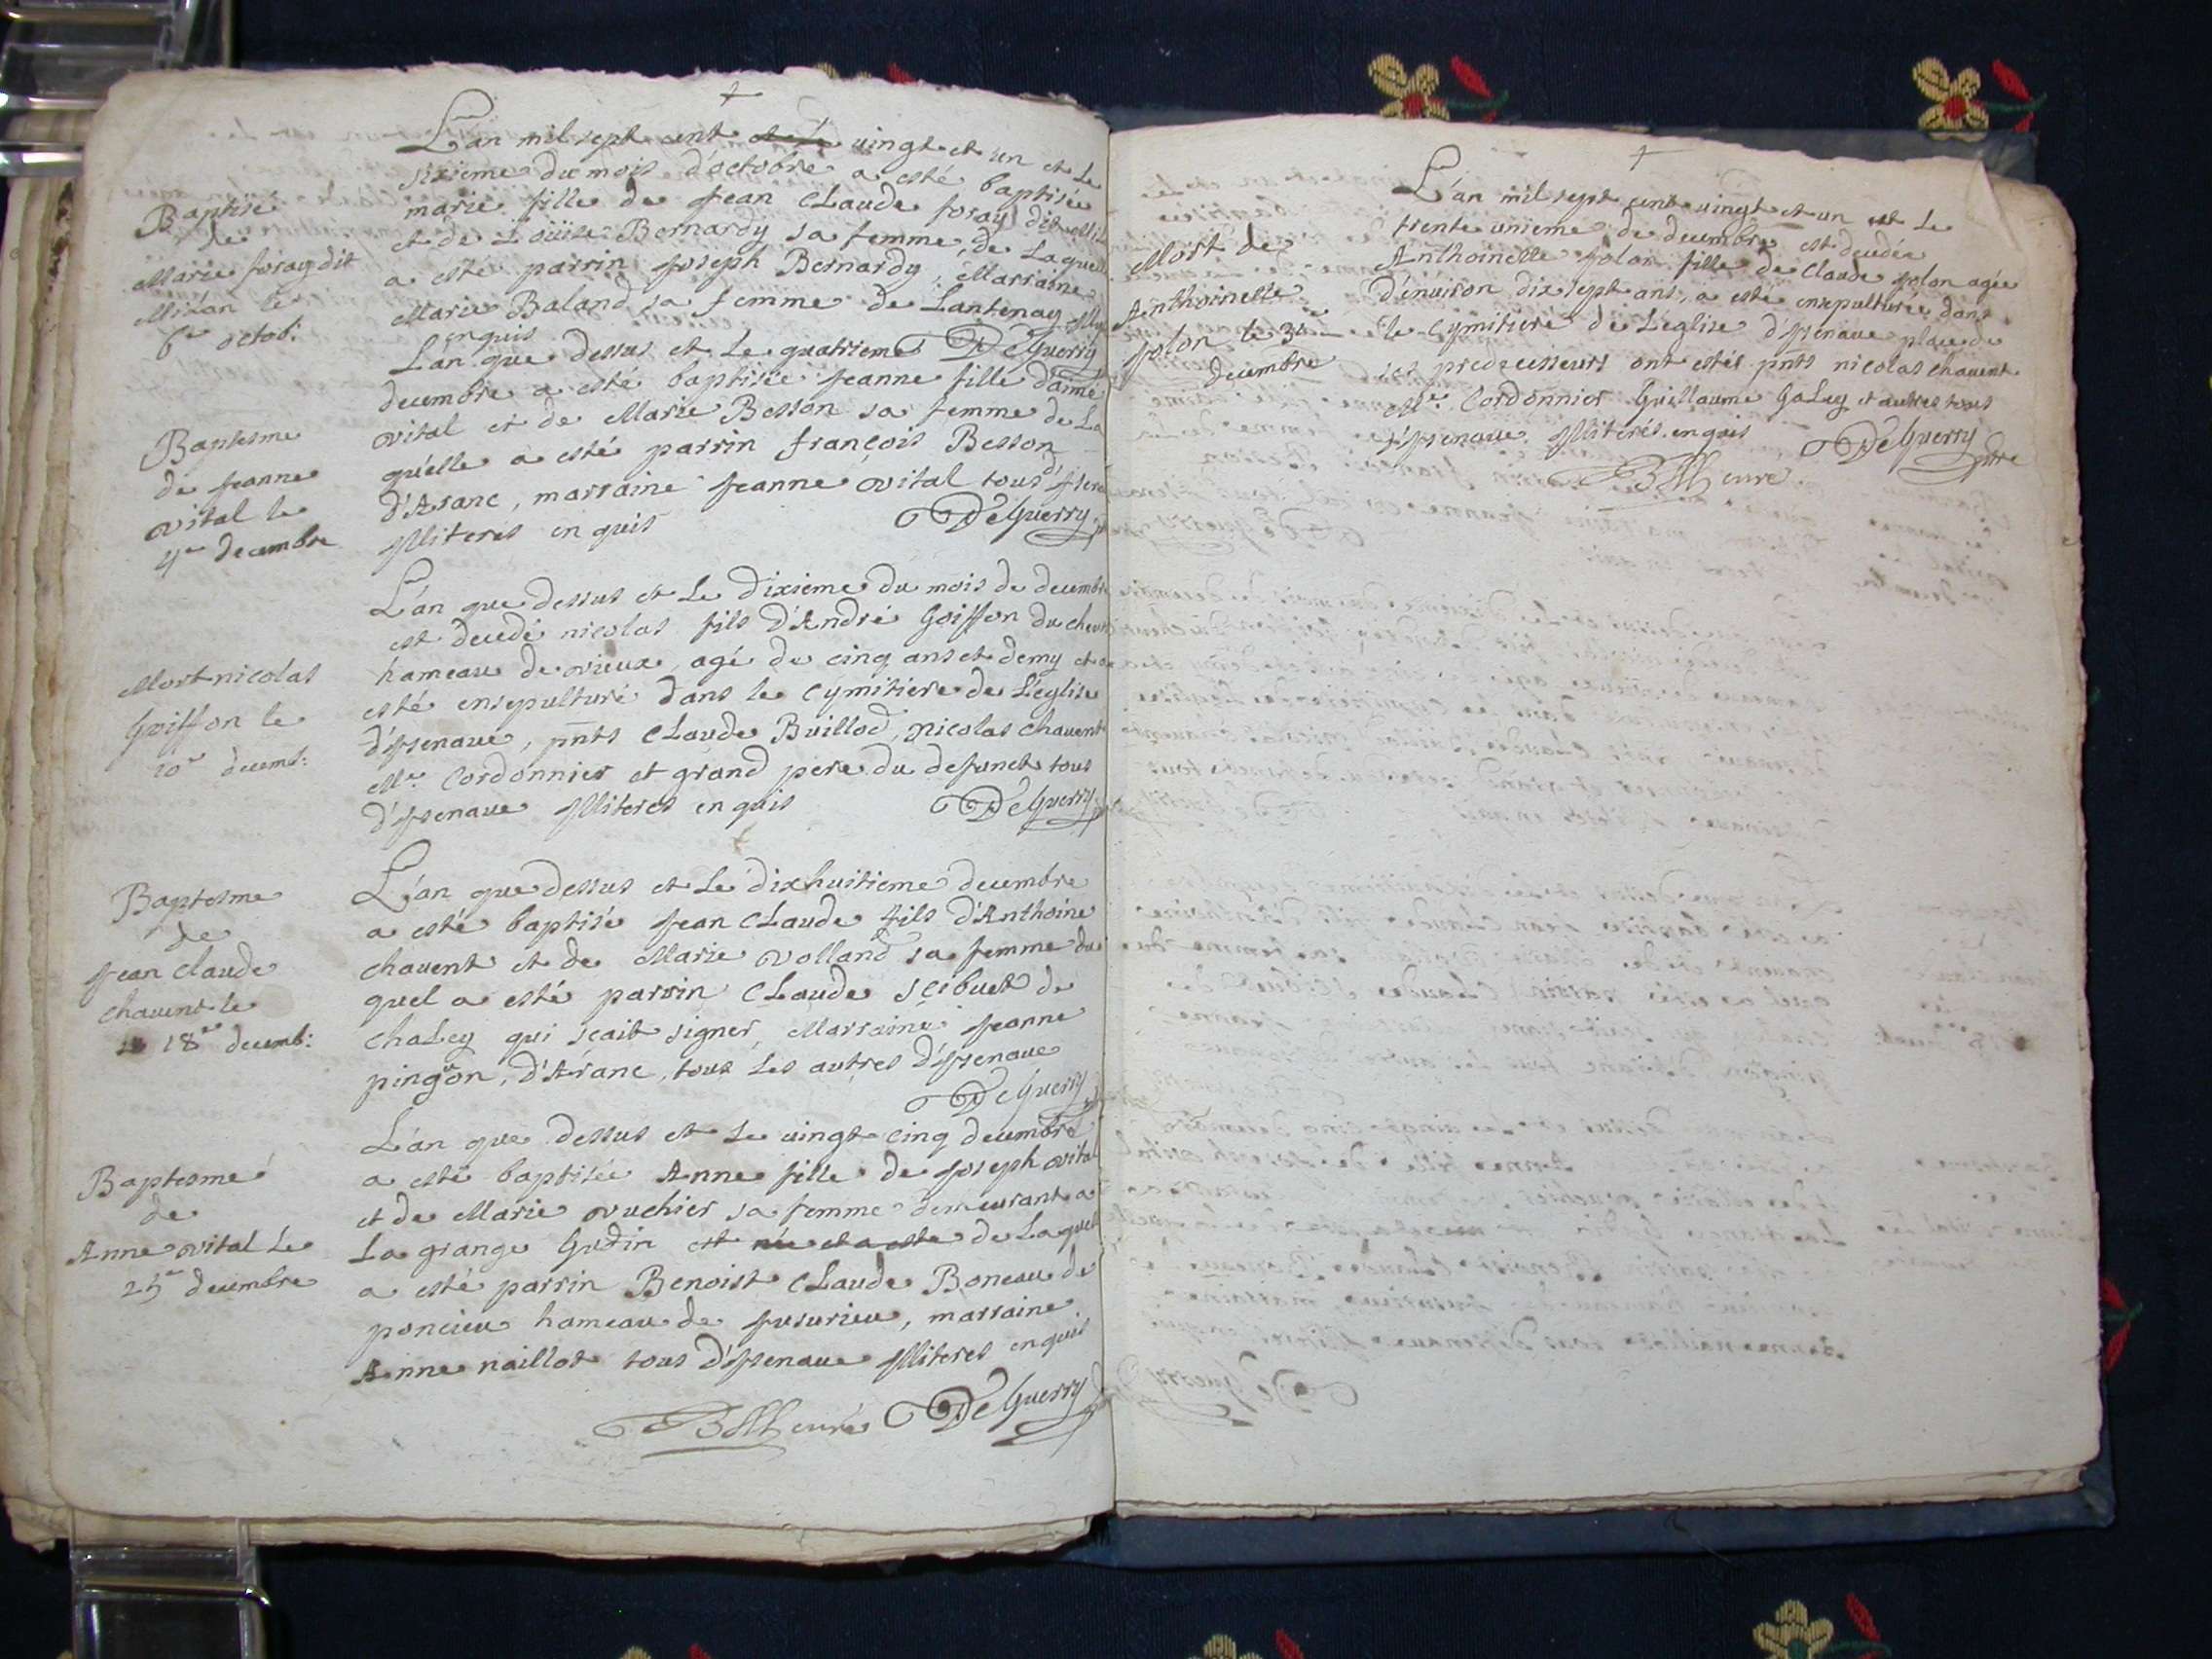 †
L'an mil sept cent et le vingt et un et Le
sixieme du mois d'octobre a esté baptisée
marie fille de Jean CLaude foray dit
et de Loüise Bernardy sa femme, de Laquelle
a esté parrin Joseph Bernardy, Marraine
Marie Baland sa femme de Lantenay
enquis DeGuerry
Baptisé
de
Marie foray dit
Milan le
6e octob:
Lan que dessus et Le quatrieme
decembre a esté baptisée Jeanne fille d'aimé
vital et de Marie Besson sa femme de La
quelle a esté parrin françois Besson
d'Aranc, marraine Jeanne vital tous
Jlliteres en quis DeGuerry
Baptesme
de Jeanne
vital le
4e decembre
L'an que dessus et Le Dixieme du mois de decembre
est decedé nicolas fils d'André Goiffon du
hameau de vieux, agé de cinq ans et demy et a
esté ensepulturé dans le Cymitiere de L'eglise
d'Jzenaue, pnts CLaude Buillod, nicolas Chauent
Me Cordonnier et grand pere du defunct tous
d'Jzenaue Jlliteres en quis DeGuerry
Mort nicolas
Goiffon le
10e decemb:
L'an que dessus et Le dixhuitieme decembre
a esté baptisé Jean CLaude fils d'Anthoine
chauent et de Marie volland sa femme du
quel a esté parrin CLaude Scibuet de
ChaLey qui scait signer, Marraine Jeanne
pingon, d'Aranc, tous Les autres d'Jzenaue
DeGuerry
Baptesme
de
Jean Claude
Chauent le
18e decemb:
L'an que dessus et Le vingt cinq decembre
a esté baptisée Anne fille de Joseph vital
et de Marie vuchier sa femme demeurant a
La grange Godin est née et a esté de Laquel
a esté parrin Benoist CLaude Boneau de
poncieu hameau de Jusurieu, marraine
Anne naillot tous d'Jzenaue Jlliteres enquis
DeGuerry
Baptesme
de
Anne vital Le
25e decembre
†
L'an mil sept cent vingt et un et Le
trente unieme de decembre est decedée
Anthoinelle Jolon fille de Claude Jolon agée
d'enuiron dix sept ans, a esté ensepulturée dans
le Cymitiere de L'eglise d'Jzenaue place de
ses predecesseurs ont estés pnts nicolas chauent
Me Cordonnier Guillaume GaLey et autres tous
d'Jzenaue Jlliterés enquis DeGuerry
Mort de
Anthoinelle
Jolon le 31e
decembre